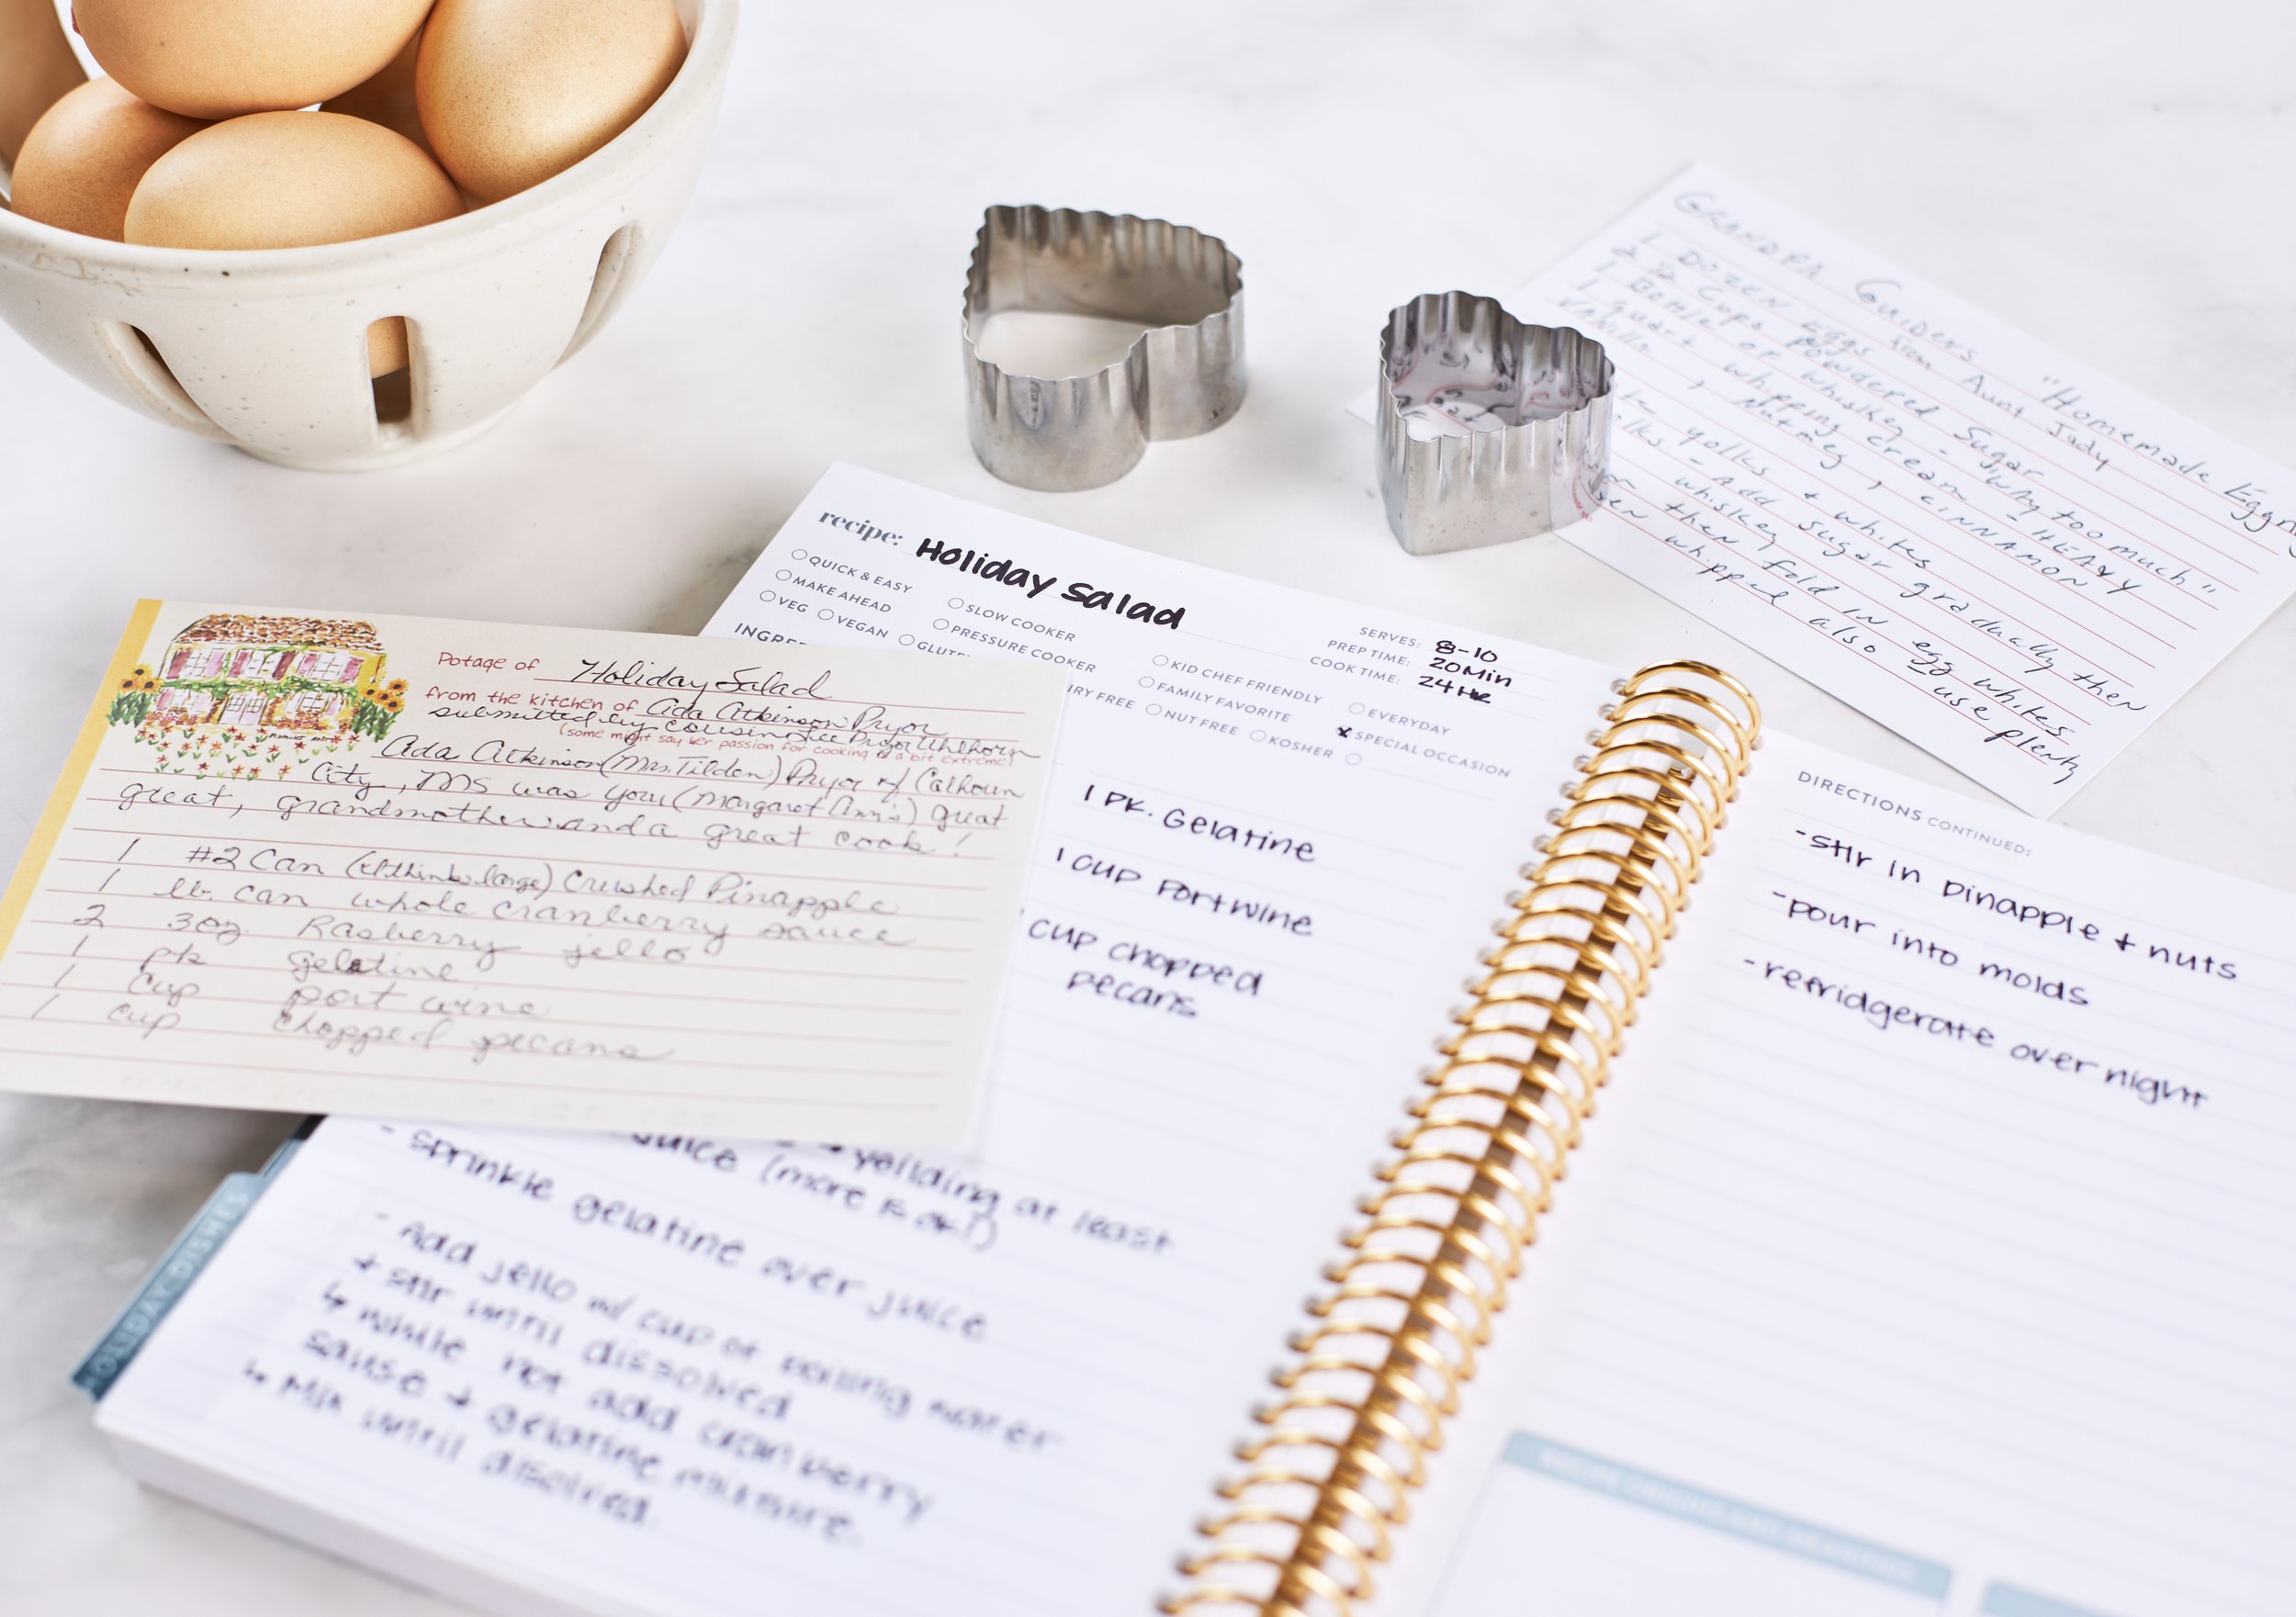 GRANDPA GUIDERS "Homemade
from Aunt Judy
1 DOZEN Eggs
2 ½ Cups Powdered Sugar
1 Bottle of whiskey - "WAY too much"
1 quart whipping cream - HEAVY
VANilla, Nutmeg, CINNAMON
yolks + whites
- Add sugar gradually then
whiskey
then fold IN egg whites
whipped also - use plenty
recipe: Holiday Salad
QUICK & EASY
MAKE AHEAD
VEG VEGAN
SLOW COOKER
PRESSURE COOKER
KID CHEF FRIENDLY
FAMILY FAVORITE
NUT FREE KOSHER
EVERYDAY
SPECIAL OCCASION
SERVES: 8-10
PREP TIME: 20 Min
COOK TIME: 24 HR
1 PK. Gelatine
1 CUP Portwine
CUP chopped
pecans
Potage of Holiday Salad
from the kitchen of Ada Atkinson Pryor
submitted by cousin Lee Pryor Uhlhorn
(some might say her passion for cooking is a bit extreme)
Ada Atkinson (Mrs. Tilden) Pryor of Calhoun
City, MS was your (Margaret Ann's) great
great, grandmother and a great cook!
1 #2 Can (I think large) Crushed Pinapple
1 lb. can whole cranberry sauce
2 3oz. Rasberry jello
1 pk gelatine
1 cup port wine
1 cup chopped pecans
yeilding at least
juice (more is ok!)
- sprinkle gelatine over juice
- Add jello w/ cup of boiling water
+ stir until dissolved
↳ while hot add cranberry
sause + gelatine mixture.
↳ Mix until disolved.
HOLIDAY DISHES
DIRECTIONS CONTINUED:
-stir in pinapple + nuts
-pour into molds
-refridgerate over night